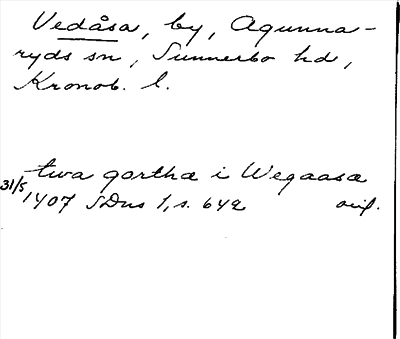 Vedåsa, by, Agunna-
ryds sn, Sunnerbo hd,
Kronob. l.
twa gortha i Wegaasa
31/5 1407 SDns 1, s. 642 orig.